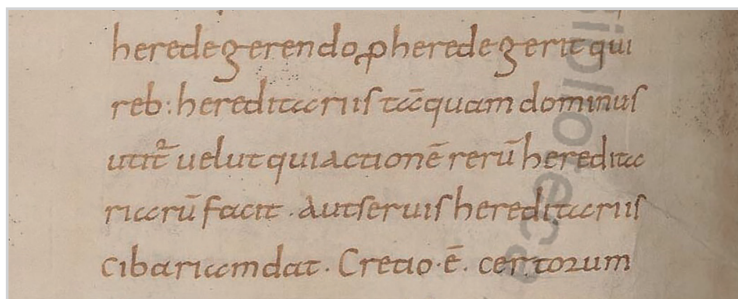 herede gerendo ꝓ herede gerit qui
reb: hereditariis tāquam dominus
utit᷑ uelut qui actionē rerū heredita
riarū facit . Aut seruis hereditariis
cibariam dat . Cretio · ē . certorum